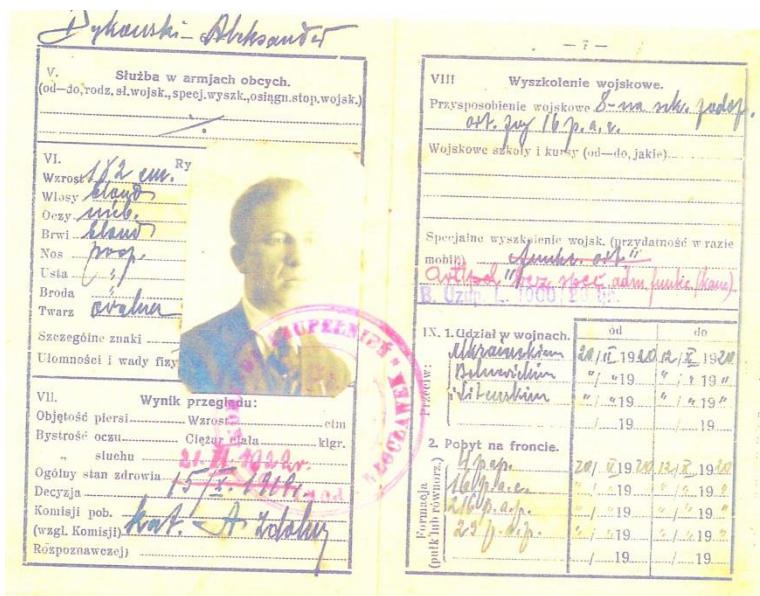 Dykowski-Aleksander
V. Służba w armjach obcych.
(od—do, rodz, sł. wojsk., specj. wyszk., osiągn. stop. wojsk.)
VI. Ry
Wzrost 182 cm.
Włosy blond
Oczy nieb.
Brwi blond
Nos prop.
Usta "
Broda
Twarz owalna
Szczególne znaki
Ułomności i wady fizy
VII. Wynik przeglądu:
Objętość piersi Wzrost ctm
Bystrość oczu Ciężar ciała klgr.
" słuchu
Ogólny stan zdrowia
Decyzja
Komisji pob.
(wzgl. Komisji) kat. A zdolny
Rozpoznawczej)
UZUPEŁNIEŃ * WŁOCŁAWEK
— 7 —
VIII Wyszkolenie wojskowe.
Przysposobienie wojskowe 8-na szk. podof.
art. przy 16 p.a.c.
Wojskowe szkoły i kursy (od—do, jakie)
Specjalne wyszkolenie wojsk. (przydatność w razie
mobil.) art."
bez spec adm. funkc.
IX. 1. Udział w wojnach. od do
Przeciw: Ukraińskiem 20/II 1920 12/X 1920
Bolszewickim "/" 19 "/" 19 "
i Litewskim "/" 19 "/" 19 "
/ 19 / 19
2. Pobyt na froncie.
Formacja (pułk lub równorz.) 4 p.a.p. 20/II 1920 12/X 1920
16 p.a.c. "/" 19 "/" 19 "
216 p.a.p. "/" 19 "/" 19 "
29 p.a.p. "/" 19 "/" 19 "
/ 19 / 19